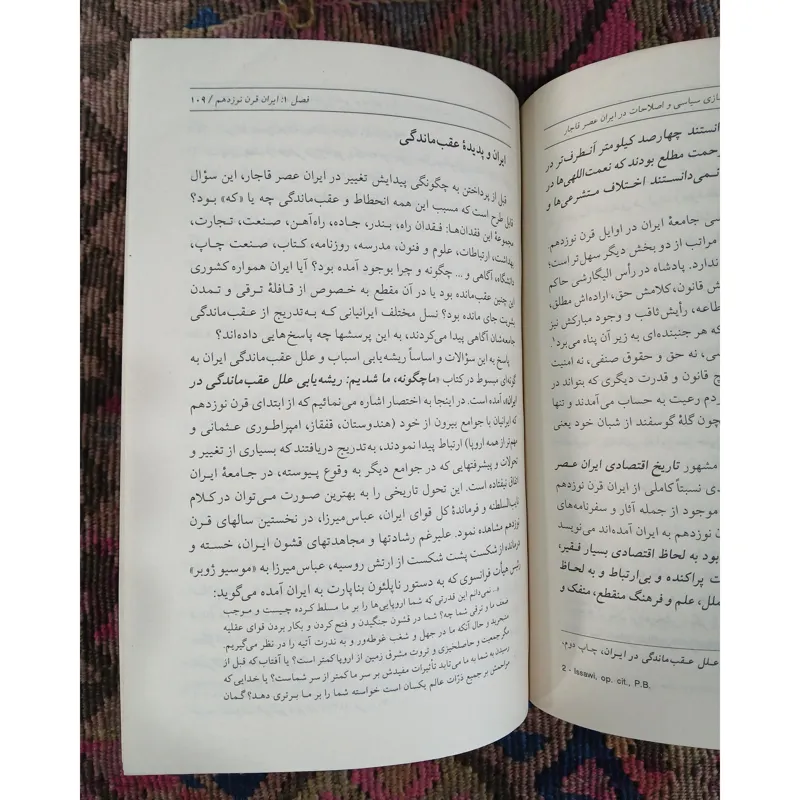 سازی سیاسی و اصلاحات در ایران عصر قاجار
دانستند چهارصد کیلومتر آنطرف‌تر در
زحمت مطلع بودند که نعمت‌اللهی‌ها در
نمی‌دانستند اختلاف متشرعی‌ها و
سی جامعهٔ ایران در اوایل قرن نوزدهم،
مراتب از دو بخش دیگر سهل‌تر است؛
ندارد. پادشاه در رأس الیگارشی حاکم
ش قانون، کلامش حق، اراده‌اش مطلق،
طاعه، رأیش ثاقب و وجود مبارکش نیز
که هر جنبنده‌ای به زیر آن پناه می‌برد۱.
سی، نه حق و حقوق صنفی، نه امنیت
چ قانون و قدرت دیگری که بتواند در
ردم رعیت به حساب می‌آمدند و تنها
چون گلهٔ گوسفند از شبان خود یعنی
مشهور تاریخ اقتصادی ایران عصر
دی نسبتاً کاملی از ایران قرن نوزدهم
موجود از جمله آثار و سفرنامه‌های
ن نوزدهم به ایران آمده‌اند می‌نویسد
بود به لحاظ اقتصادی بسیار فقیر،
ت پراکنده و بی‌ارتباط و به لحاظ
ملل، علم و فرهنگ منقطع، منفک و
علل عقب‌ماندگی در ایران، چاپ دوم،
2 - Issawi, op. cit., P.B
فصل ۱: ایران قرن نوزدهم / ۱۰۹
ایران و پدیدهٔ عقب‌ماندگی
قبل از پرداختن به چگونگی پیدایش تغییر در ایران عصر قاجار، این سؤال
قابل طرح است که مسبب این همه انحطاط و عقب‌ماندگی چه یا «که» بود؟
مجموعهٔ این فقدان‌ها: فقدان راه، بندر، جاده، راه‌آهن، صنعت، تجارت،
بهداشت، ارتباطات، علوم و فنون، مدرسه، روزنامه، کتاب، صنعت چاپ،
دانشگاه، آگاهی و ... چگونه و چرا بوجود آمده بود؟ آیا ایران همواره کشوری
این چنین عقب‌مانده بود یا در آن مقطع به خصوص از قافلهٔ ترقی و تمدن
بشریت جای مانده بود؟ نسل مختلف ایرانیانی که به‌تدریج از عقب‌ماندگی
جامعه‌شان آگاهی پیدا می‌کردند، به این پرسشها چه پاسخ‌هایی داده‌اند؟
پاسخ به این سؤالات و اساساً ریشه‌یابی اسباب و علل عقب‌ماندگی ایران به
گونه‌ای مبسوط در کتاب «ماچگونه، ما شدیم: ریشه‌یابی علل عقب‌ماندگی در
ایران»، آمده است. در اینجا به اختصار اشاره می‌نمائیم که از ابتدای قرن نوزدهم
که ایرانیان با جوامع بیرون از خود (هندوستان، قفقاز، امپراطوری عثمانی و
مهم‌تر از همه اروپا) ارتباط پیدا نمودند، به‌تدریج دریافتند که بسیاری از تغییر و
تحولات و پیشرفتهایی که در جوامع دیگر به وقوع پیوسته، در جامعهٔ ایران
اتفاق نیفتاده است. این تحول تاریخی را به بهترین صورت می‌توان در کلام
نایب‌السلطنه و فرماندهٔ کل قوای ایران، عباس‌میرزا، در نخستین سالهای قرن
نوزدهم مشاهده نمود. علیرغم رشادتها و مجاهدتهای قشون ایران، خسته و
درمانده از شکست پشت شکست از ارتش روسیه، عباس‌میرزا به «موسیو ژوبر»
رئیس هیأت فرانسوی که به دستور ناپلئون بناپارت به ایران آمده می‌گوید:
«. نمی‌دانم این قدرتی که شما اروپایی‌ها را بر ما مسلط کرده چیست و موجب
ضعف ما و ترقی شما چه؟ شما در قشون جنگیدن و فتح کردن و بکار بردن قوای عقلیه
متبحرید و حال آنکه ما در جهل و شغب غوطه‌ور و به ندرت آتیه را در نظر می‌گیریم.
مگر جمعیت و حاصلخیزی و ثروت مشرق زمین از اروپا کمتر است؟ یا آفتاب که قبل از
رسیدن به شما به ما می‌تابد تأثیرات مفیدش بر سر ما کمتر از سر شماست؟ یا خدایی که
مراحمش بر جمیع ذرّات عالم یکسان است خواسته شما را بر ما برتری دهد؟ گمان